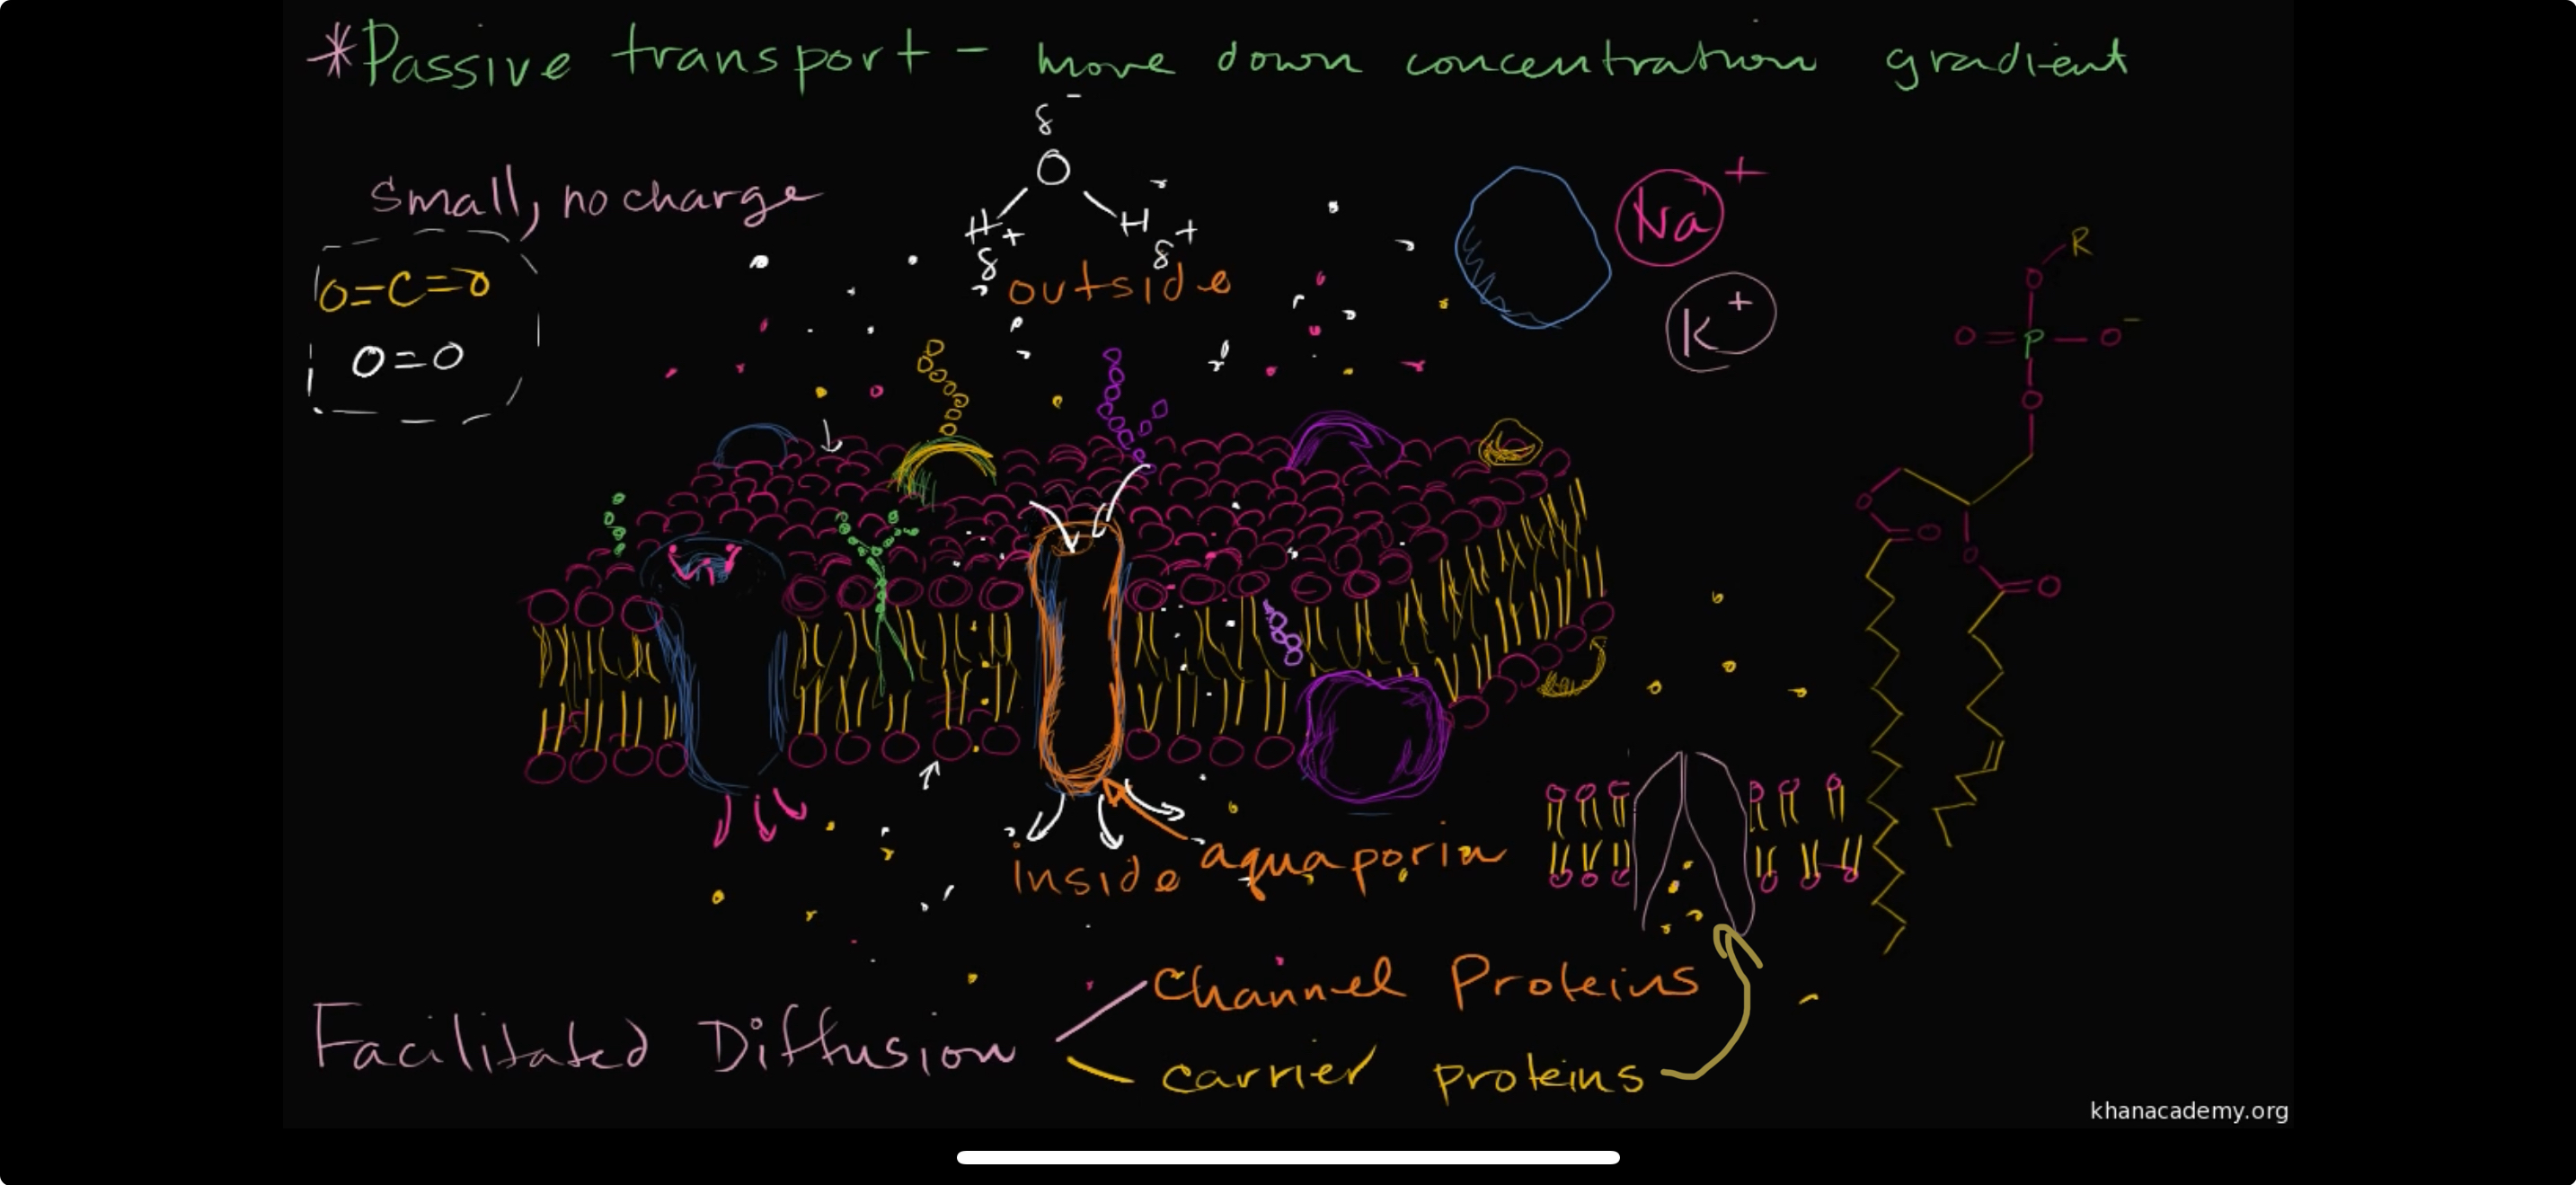 *Passive transport - move down concentration gradient
δ-
O
H H
δ+ δ+
small, no charge
O=C=O
O=O
outside
Na+
K+
R
O
O=P-O-
O
O
O
O
O
inside
aquaporin
Facilitated Diffusion
Channel Proteins
carrier proteins
khanacademy.org